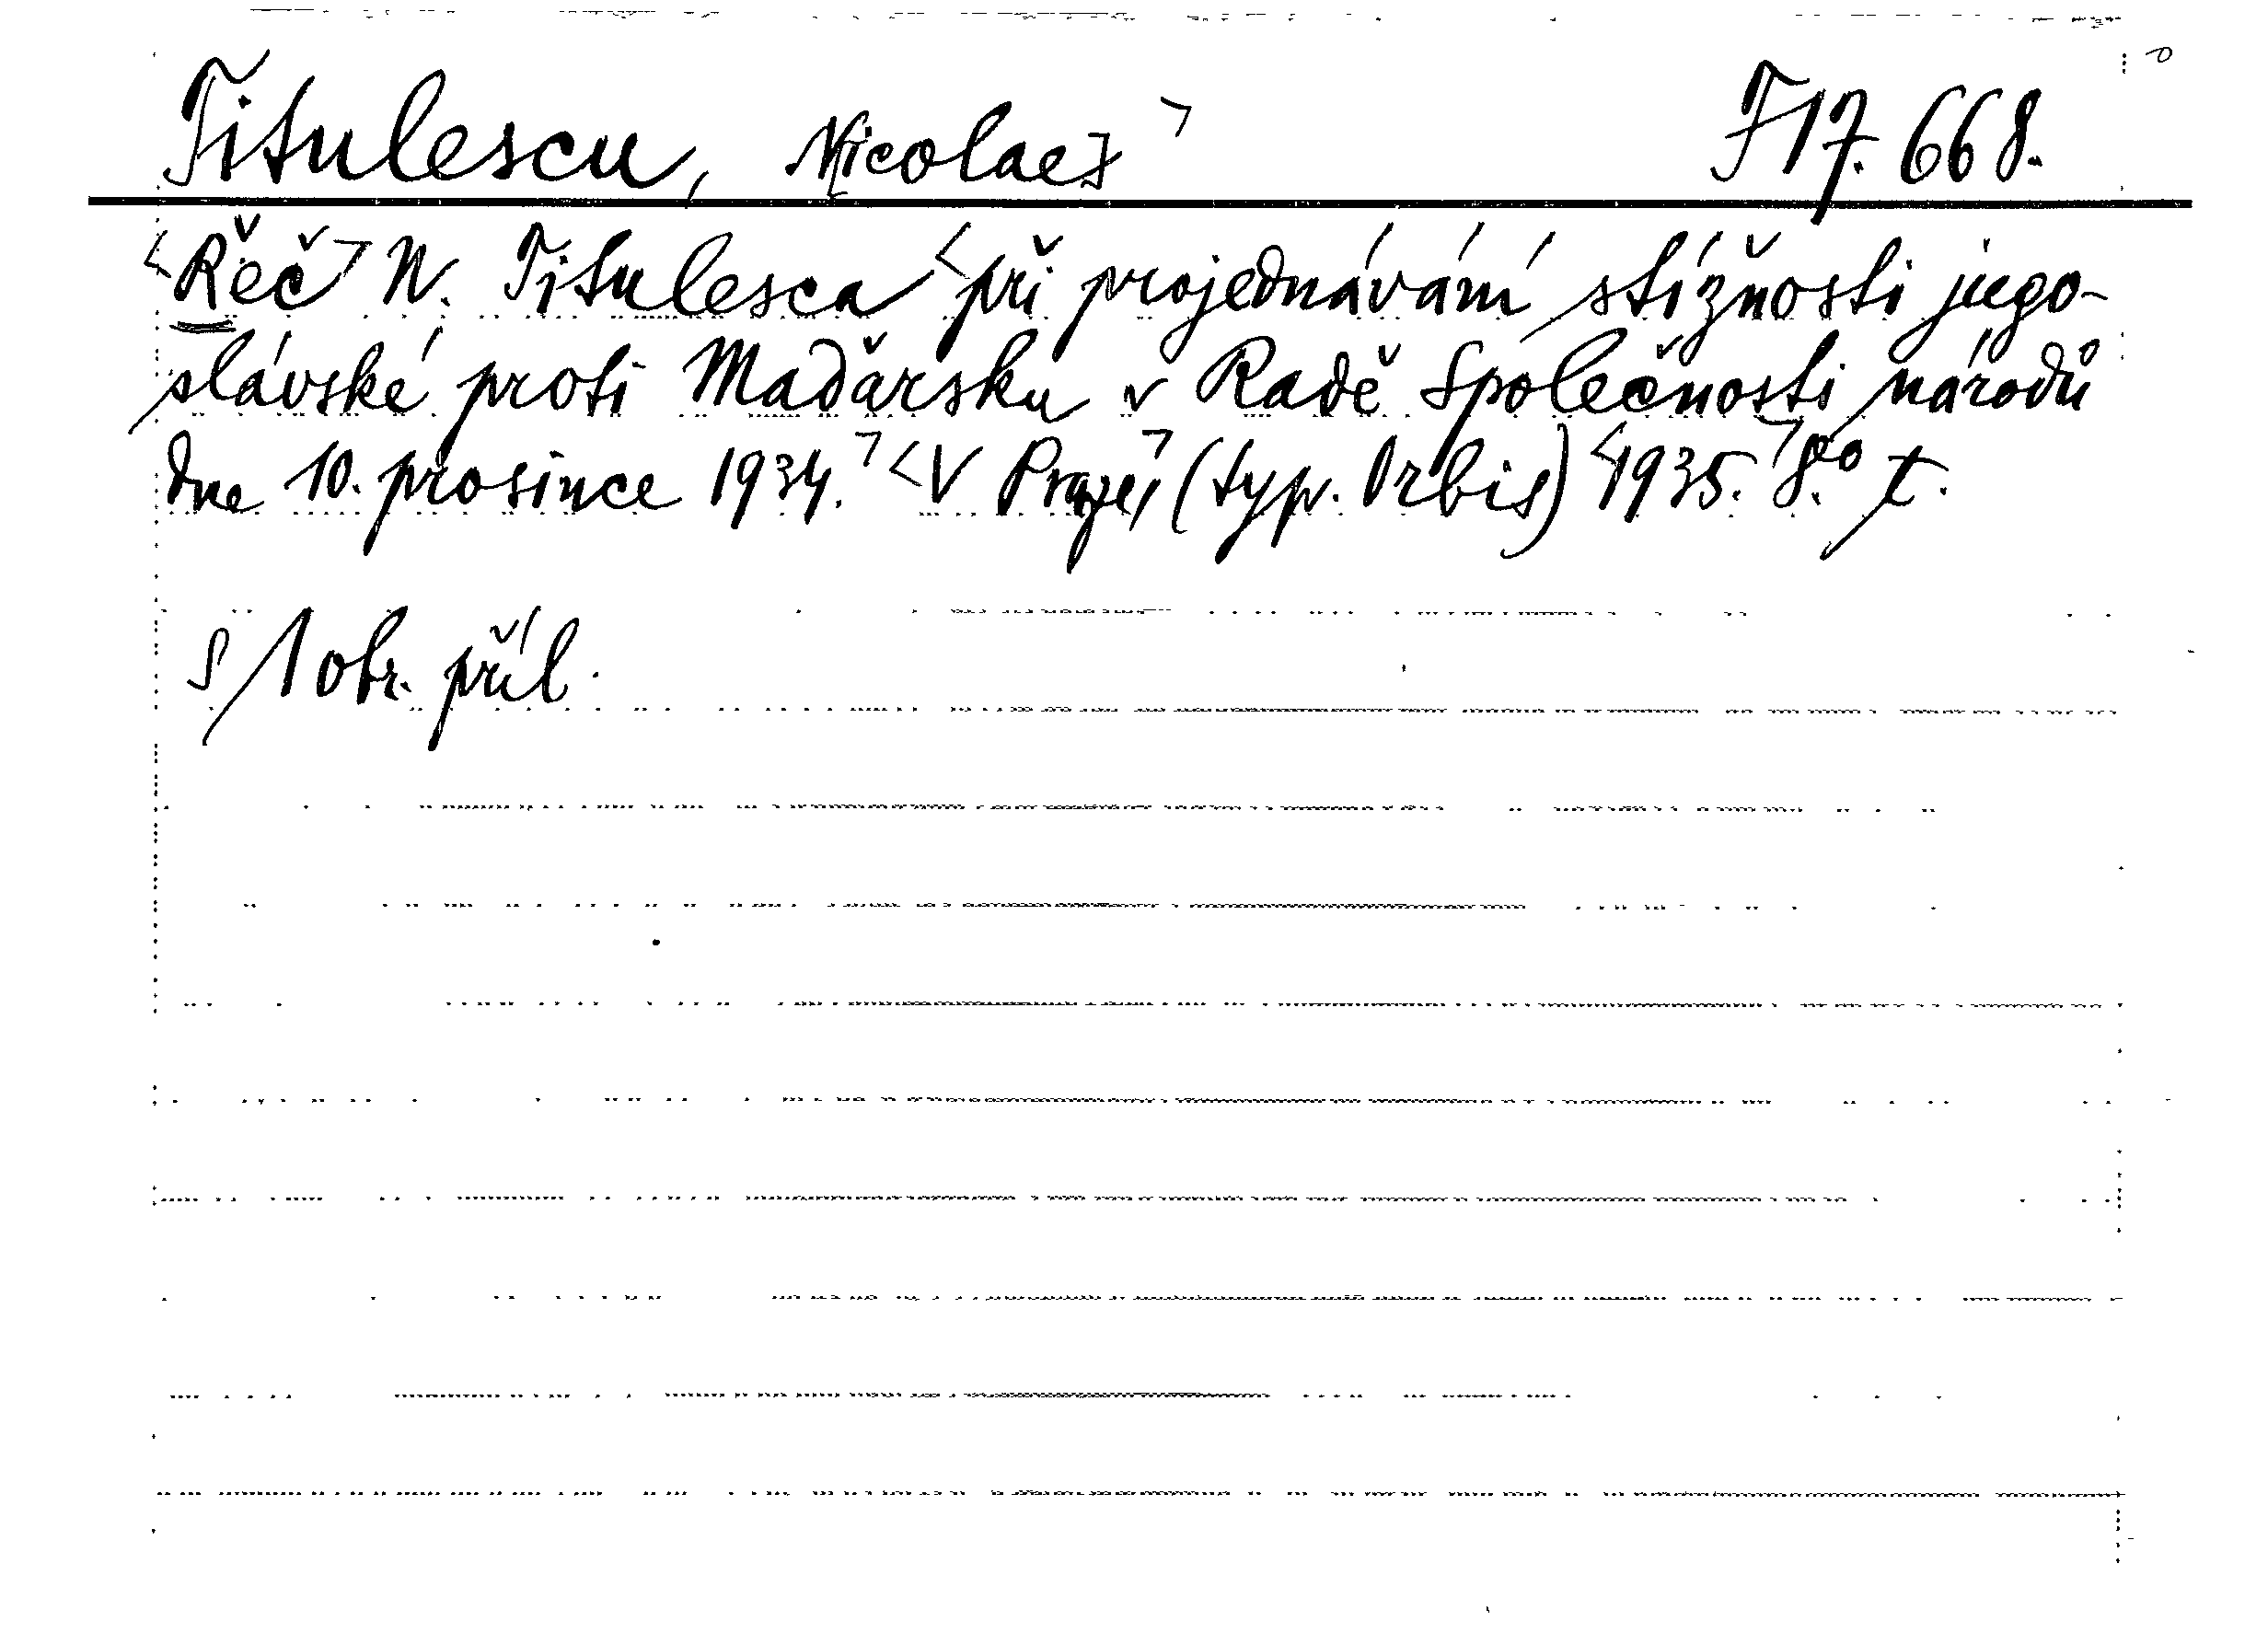 Titulescu, N[icolae] F 17.668.
Řeč N. Titulesca při projednávání stížnosti jugo-
slávské proti Maďarsku v Radě Společnosti národů
dne 10. prosince 1934. V Praze, (typ. Orbis) 1935. 8° t.
S 1 obr. příl.